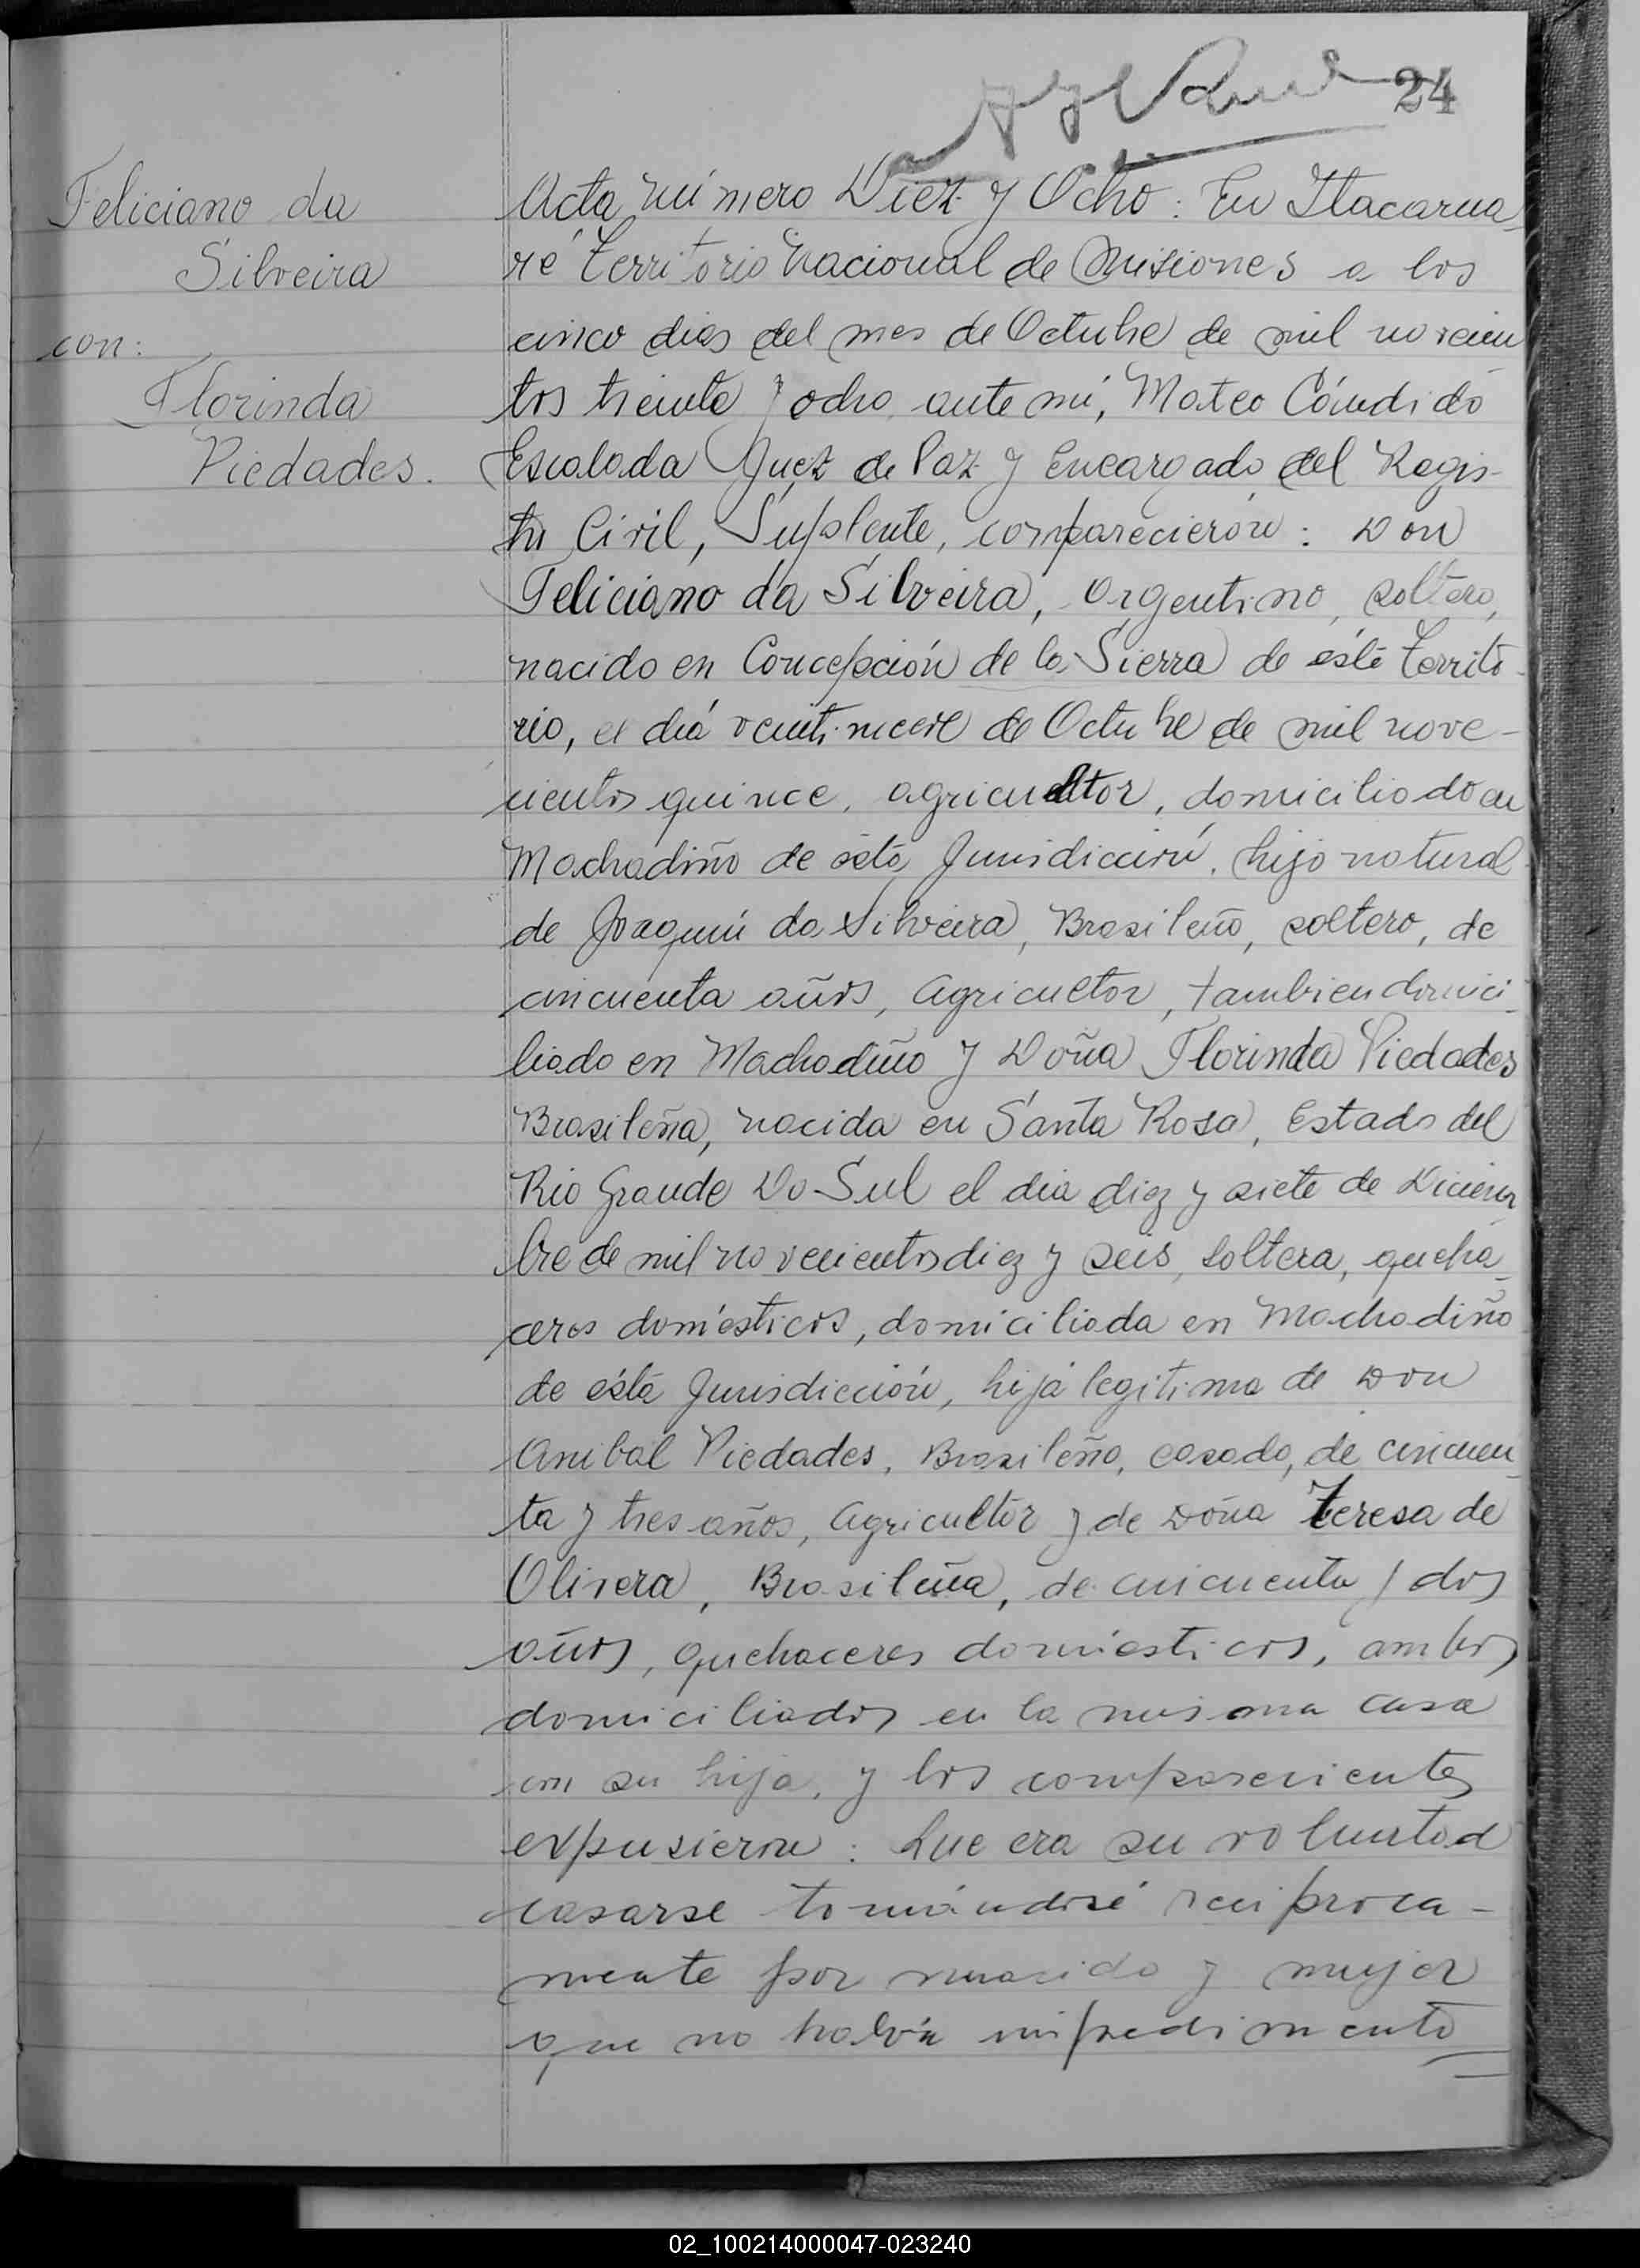 24
Feliciano da
Silveira
con:
Florinda
Piedades.
Acta número Diez y Ocho: En Itacarua
ré Territorio Nacional de Misiones a los
cinco dias del mes de Octubre de mil novecien
tos treinta y ocho, ante mí, Mateo Cándido
Escalada Juez de Paz y Encargado del Regis-
tro Civil, Suplente, comparecierón: Don
Feliciano da Silveira, Argentino, soltero,
nacido en Concepción de la Sierra de éste Territo-
rio, el diá veintinueve de Octubre de mil nove-
cientos quince, agricultor, domiciliado en
Machadiño de ésta Jurisdicción, hijo natural
de Joaquín da Silveira, Brasileño, soltero, de
cincuenta años, agricultor, tambien domici-
liado en Machadiño y Doña Florinda Piedades
Brasileña, nacida en Santa Rosa, Estado del
Rio Grande Do Sul el dia diez y siete de Diciem
bre de mil novecientos diez y seis, soltera, queha-
ceres domésticos, domiciliada en Machadiño
de ésta Jurisdicción, hija legitima de Don
Anibal Piedades, Brasileño, casado, de cincuen
ta y tres años, agricultor y de Doña Teresa de
Olivera, Brasileña, de cincuenta y dos
años, quehaceres domésticos, ambos
domiciliados en la misma casa
con su hija, y los comparecientes
expusieron: Que era su voluntad
casarse tomándosé reciproca-
mente por marido y mujer
que no había impedimento
02_100214000047-023240